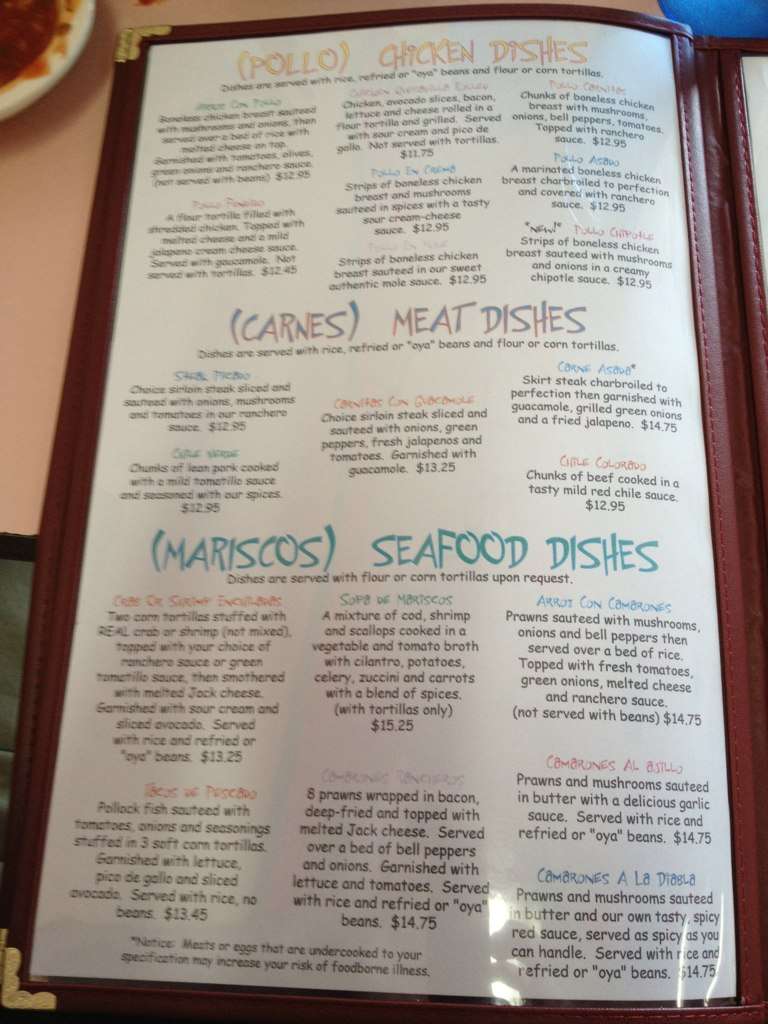 (POLLO) CHICKEN DISHES
Dishes are served with rice, refried or "oya" beans and flour or corn tortillas.
Arroz Con Pollo
Boneless chicken breast sauteed
with mushrooms and onions, then
served over a bed of rice with
melted cheese on top.
Garnished with tomatoes, olives,
green onions and ranchero sauce.
(not served with beans) $12.95
Pollo
A flour tortilla filled with
shredded chicken. Topped with
melted cheese and a mild
jalapeno cream cheese sauce.
Served with guacamole. Not
served with tortillas. $12.45
Chicken, avocado slices, bacon,
lettuce and cheese rolled in a
flour tortilla and grilled. Served
with sour cream and pico de
gallo. Not served with tortillas.
$11.75
Pollo En Crema
Strips of boneless chicken
breast and mushrooms
sauteed in spices with a tasty
sour cream-cheese
sauce. $12.95
Pollo En Mole
Strips of boneless chicken
breast sauteed in our sweet
authentic mole sauce. $12.95
Pollo Carnitas
Chunks of boneless chicken
breast with mushrooms,
onions, bell peppers, tomatoes.
Topped with ranchero
sauce. $12.95
Pollo Asado
A marinated boneless chicken
breast charbroiled to perfection
and covered with ranchero
sauce. $12.95
*New!* Pollo Chipotle
Strips of boneless chicken
breast sauteed with mushrooms
and onions in a creamy
chipotle sauce. $12.95
(CARNES) MEAT DISHES
Dishes are served with rice, refried or "oya" beans and flour or corn tortillas.
Steak Picado
Choice sirloin steak sliced and
sauteed with onions, mushrooms
and tomatoes in our ranchero
sauce. $12.95
Chile Verde
Chunks of lean pork cooked
with a mild tomatillo sauce
and seasoned with our spices.
$12.95
Carnitas Con Guacamole
Choice sirloin steak sliced and
sauteed with onions, green
peppers, fresh jalapenos and
tomatoes. Garnished with
guacamole. $13.25
Carne Asada*
Skirt steak charbroiled to
perfection then garnished with
guacamole, grilled green onions
and a fried jalapeno. $14.75
Chile Colorado
Chunks of beef cooked in a
tasty mild red chile sauce.
$12.95
(MARISCOS) SEAFOOD DISHES
Dishes are served with flour or corn tortillas upon request.
Crab Or Shrimp Enchiladas
Two corn tortillas stuffed with
REAL crab or shrimp (not mixed),
topped with your choice of
ranchero sauce or green
tomatillo sauce, then smothered
with melted Jack cheese.
Garnished with sour cream and
sliced avocado. Served
with rice and refried or
"oya" beans. $13.25
Tacos de Pescado
Pollock fish sauteed with
tomatoes, onions and seasonings
stuffed in 3 soft corn tortillas.
Garnished with lettuce,
pico de gallo and sliced
avocado. Served with rice, no
beans. $13.45
Sopa de Mariscos
A mixture of cod, shrimp
and scallops cooked in a
vegetable and tomato broth
with cilantro, potatoes,
celery, zuccini and carrots
with a blend of spices.
(with tortillas only)
$15.25
Camarones Rancheros
8 prawns wrapped in bacon,
deep-fried and topped with
melted Jack cheese. Served
over a bed of bell peppers
and onions. Garnished with
lettuce and tomatoes. Served
with rice and refried or "oya"
beans. $14.75
Arroz Con Camarones
Prawns sauteed with mushrooms,
onions and bell peppers then
served over a bed of rice.
Topped with fresh tomatoes,
green onions, melted cheese
and ranchero sauce.
(not served with beans) $14.75
Camarones Al Ajillo
Prawns and mushrooms sauteed
in butter with a delicious garlic
sauce. Served with rice and
refried or "oya" beans. $14.75
Camarones A La Diabla
Prawns and mushrooms sauteed
in butter and our own tasty, spicy
red sauce, served as spicy as you
can handle. Served with rice and
refried or "oya" beans. $14.75
*Notice: Meats or eggs that are undercooked to your
specification may increase your risk of foodborne illness.